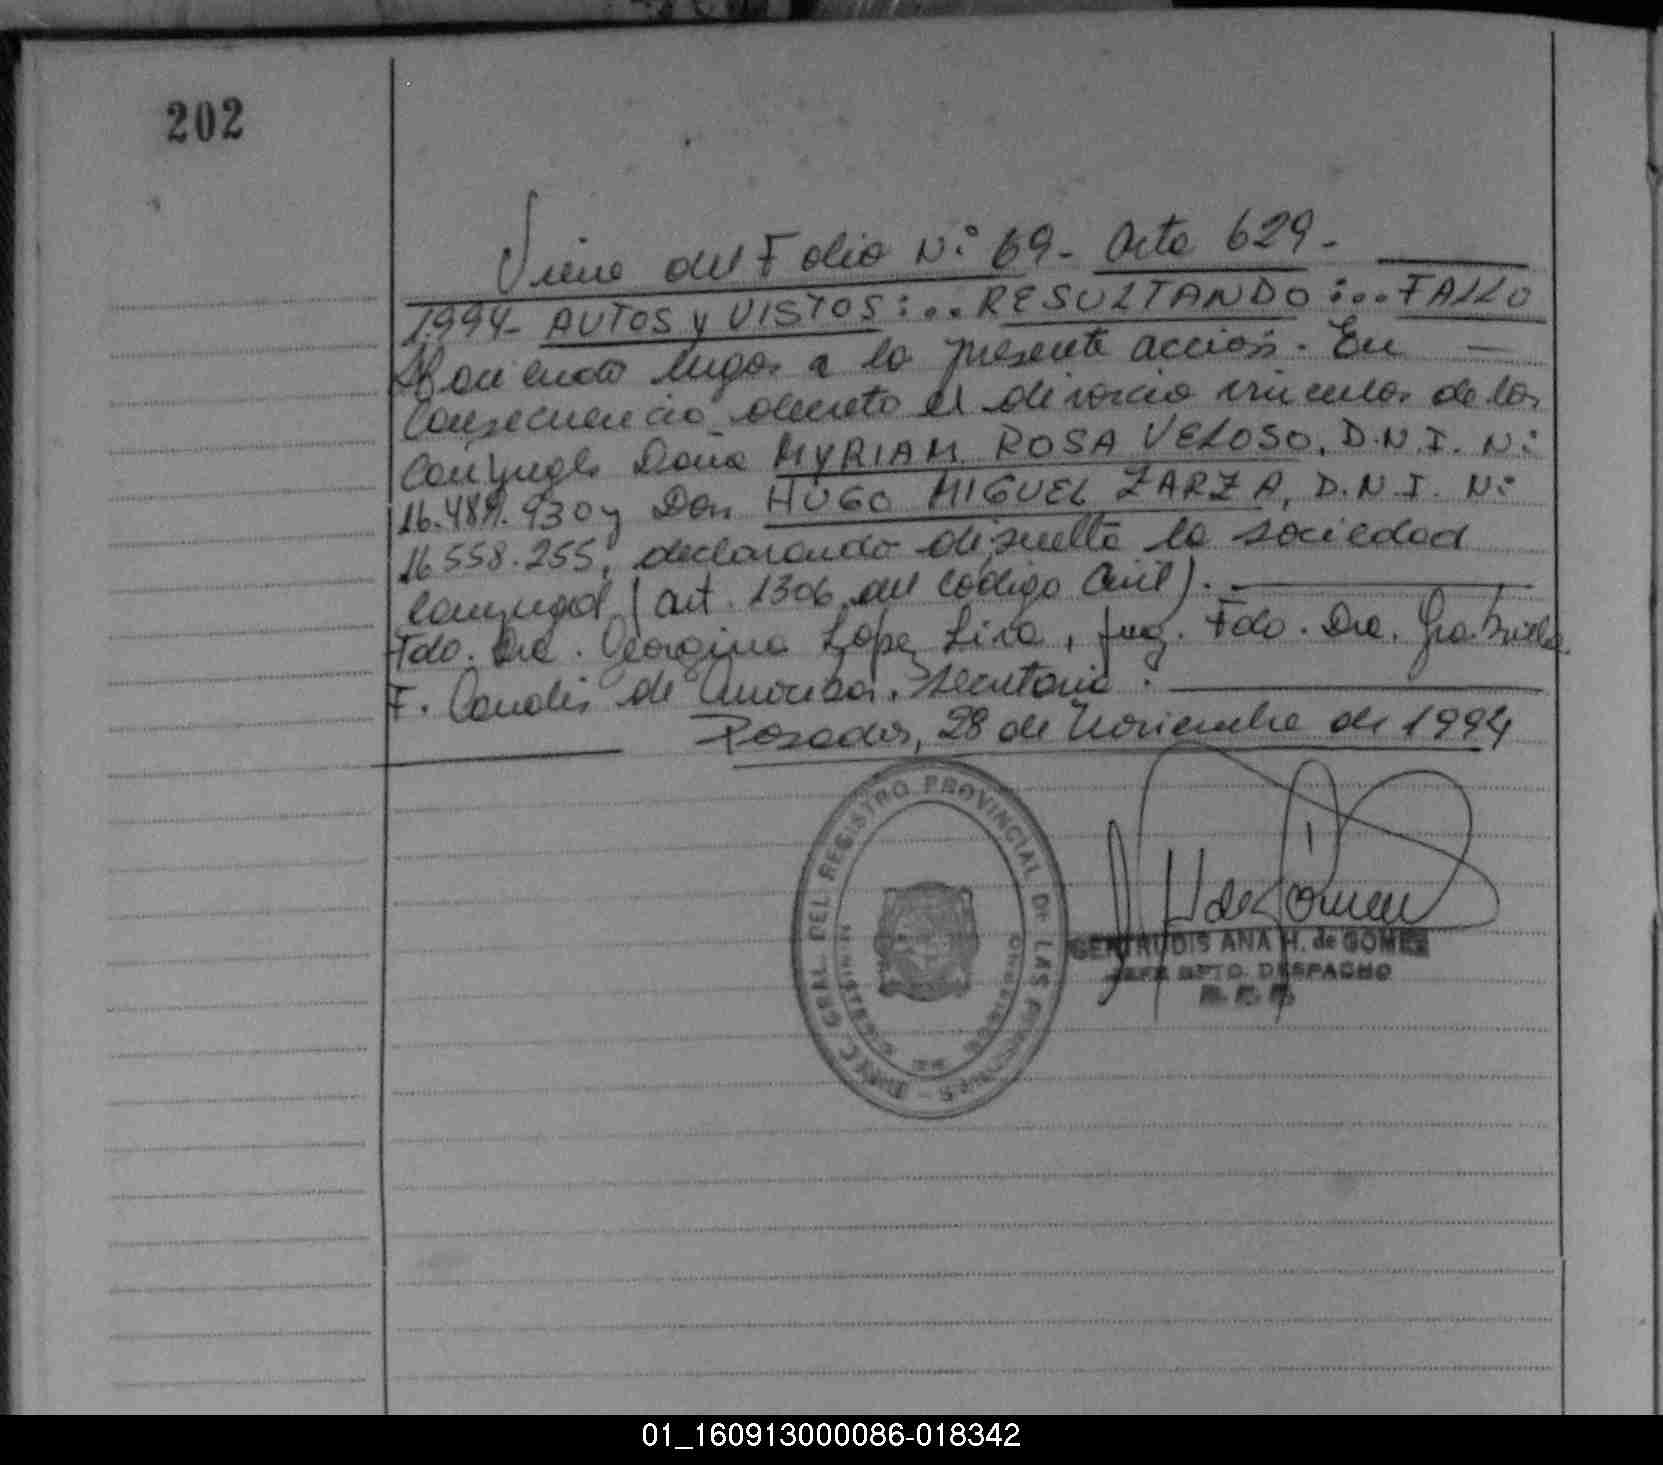 202
Viene del Folio N: 69- Acta 629-
1994- AUTOS y VISTOS:.. RESULTANDO:... FALLO
Haciendo lugar a la presente acción. En
Consecuencia, decreto el divorcio vincular de los
Cónyuges Doña MYRIAM ROSA VELOSO, D.N.I. N:
16.489.930 y Don HUGO MIGUEL ZARZA, D.N.I. N:
16.558.255, declarando disuelta la sociedad
conyugal (art. 1306 del Código Civil).
Fdo. Dra. Georgina López Liva, Juez. Fdo. Dra. Gabriela
F. Canalis de secretaria.
Posadas, 28 de Noviembre de 1994
DIREC. GRAL. DEL REGISTRO PROVINCIAL DE LAS PERSONAS
H de Gómez
GERTRUDIS ANA H. de GOMEZ
JEFA DPTO. DESPACHO
01_160913000086-018342